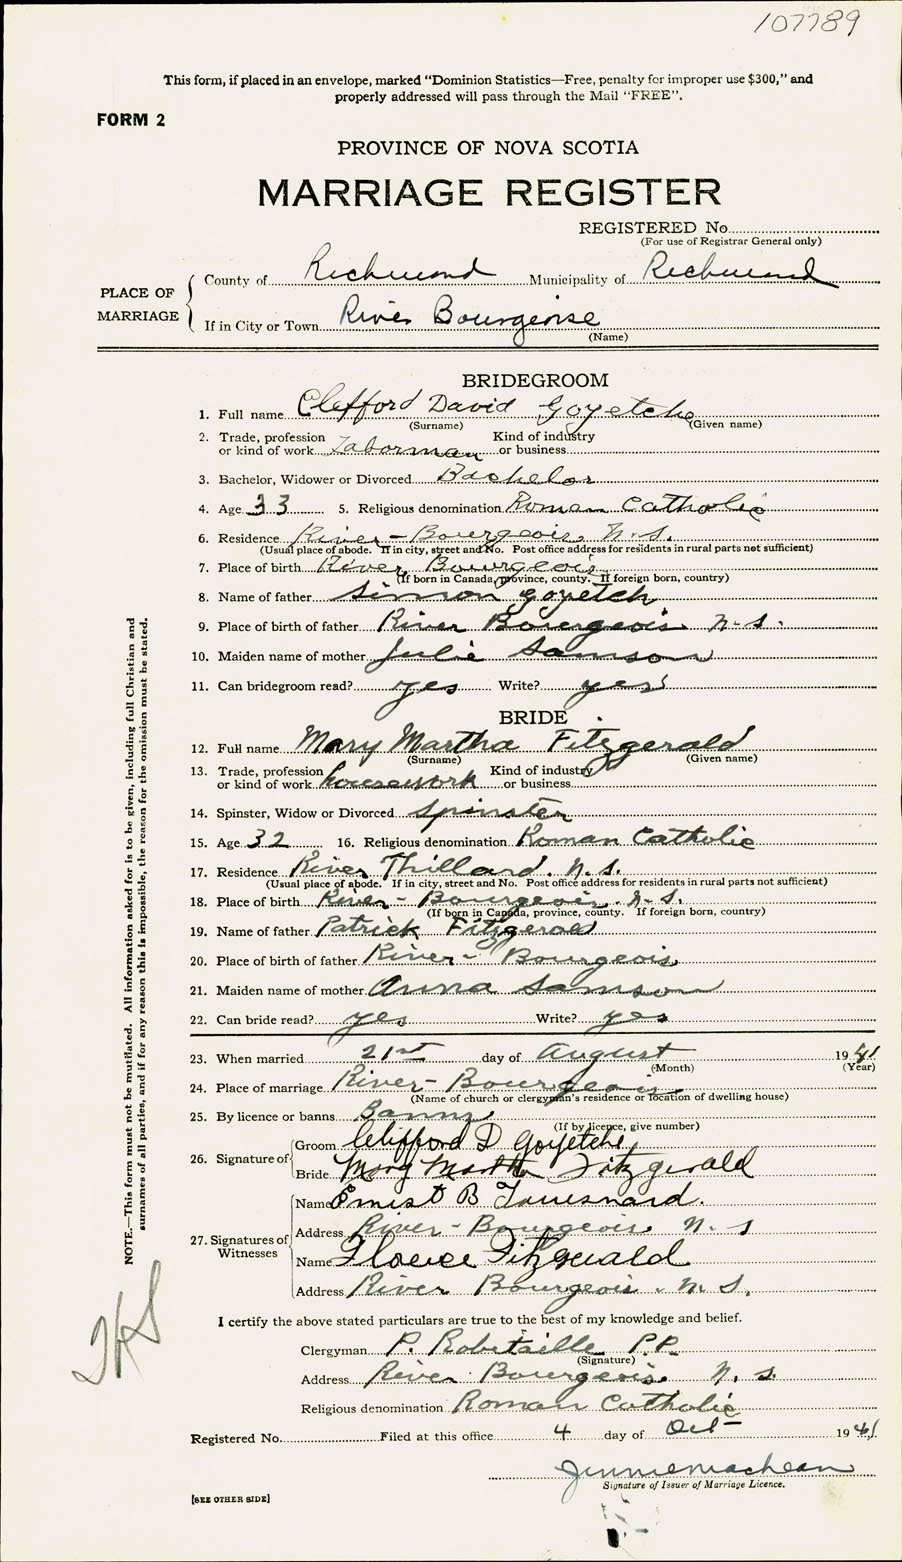 107789
This form, if placed in an envelope, marked "Dominion Statistics—Free, penalty for improper use $300," and
properly addressed will pass through the Mail "FREE".
FORM 2
PROVINCE OF NOVA SCOTIA
MARRIAGE REGISTER
REGISTERED No.
(For use of Registrar General only)
PLACE OF MARRIAGE
County of Richmond Municipality of Richmond
If in City or Town River Bourgeoise
(Name)
BRIDEGROOM
1. Full name Clifford David Goyetche
(Surname) (Given name)
2. Trade, profession or kind of work Laborman Kind of industry or business
3. Bachelor, Widower or Divorced Bachelor
4. Age 33 5. Religious denomination Roman Catholic
6. Residence River-Bourgeois N.S.
(Usual place of abode. If in city, street and No. Post office address for residents in rural parts not sufficient)
7. Place of birth River Bourgeois
(If born in Canada, province, county. If foreign born, country)
8. Name of father Simon goyetch
9. Place of birth of father River Bourgeois N-S.
10. Maiden name of mother Julie Samson
11. Can bridegroom read? yes Write? yes
BRIDE
12. Full name Mary Martha Fitzgerald
(Surname) (Given name)
13. Trade, profession or kind of work housework Kind of industry or business
14. Spinster, Widow or Divorced Spinster
15. Age 32 16. Religious denomination Roman Catholic
17. Residence River Thillard. N.S.
(Usual place of abode. If in city, street and No. Post office address for residents in rural parts not sufficient)
18. Place of birth River-Bourgeois. N-S.
(If born in Canada, province, county. If foreign born, country)
19. Name of father Patrick Fitzgerald
20. Place of birth of father River-Bourgeois
21. Maiden name of mother Anna Samson
22. Can bride read? yes Write? yes
23. When married 21st day of August 1941
(Month) (Year)
24. Place of marriage River-Bourgeois
(Name of church or clergyman's residence or location of dwelling house)
25. By licence or banns Banns
(If by licence, give number)
26. Signature of Groom Clifford D Goyetche
Bride Mary Martha Fitzgerald
27. Signatures of Witnesses
Name B
Address River-Bourgeois N-S
Name Fitzgerald
Address River Bourgeois. N. S.
I certify the above stated particulars are true to the best of my knowledge and belief.
Clergyman P. Robitaille P.P.
(Signature)
Address River Bourgeois. N. S.
Religious denomination Roman Catholic
Registered No. Filed at this office 4 day of Oct 1941
Signature of Issuer of Marriage Licence.
[SEE OTHER SIDE]
NOTE.—This form must not be mutilated. All information asked for is to be given, including full Christian and
surnames of all parties, and if for any reason this is impossible, the reason for the omission must be stated.